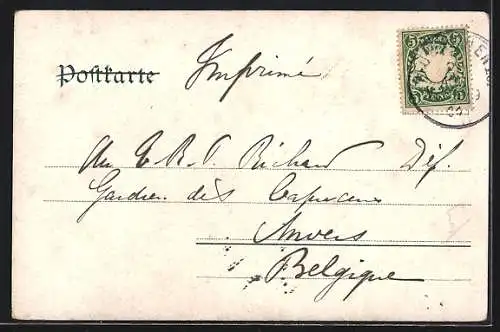 Postkarte
Imprimé
Au T. R. P. Richard Déf.
Gardien des Capucins
Anvers
Belgique
5 5
5 5